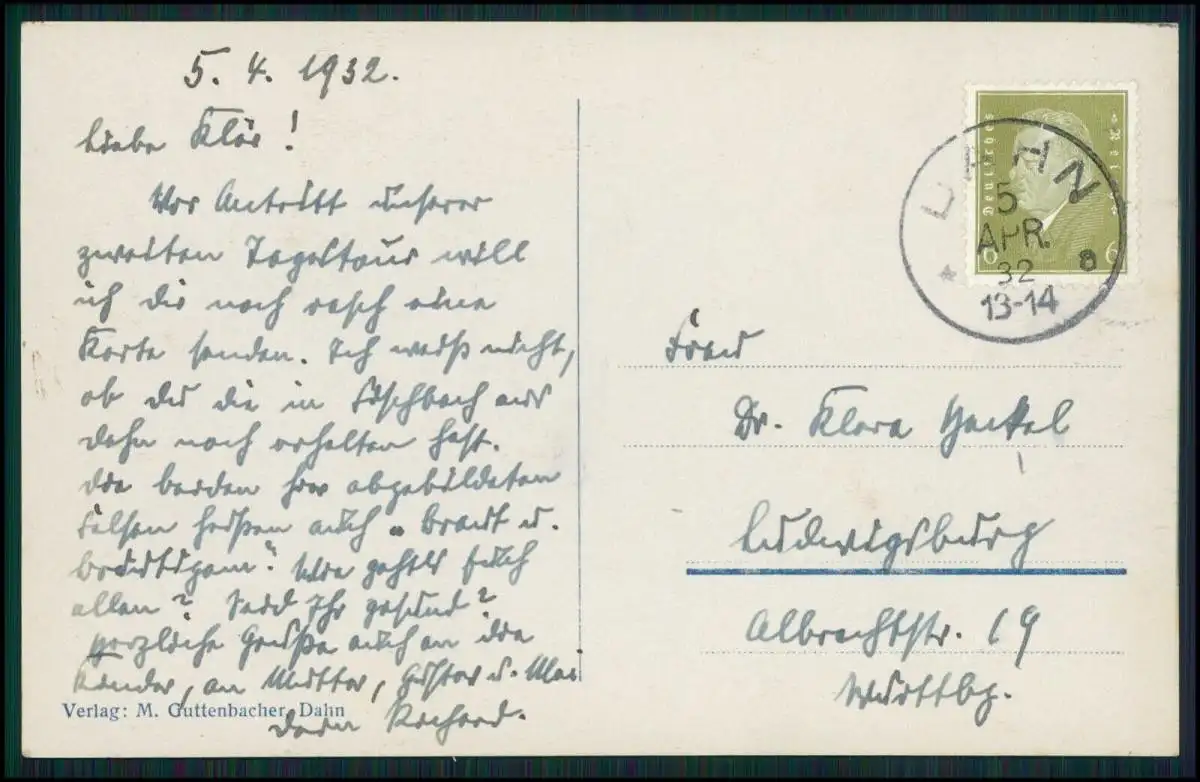 5. 4. 1932.
Liebe Klär!
Vor Antritt unserer
zweiten Tagestour will
ich dir noch rasch eine
Karte senden. Ich weiß nicht,
ob du die in Fischbach aus
Dahn noch erhalten hast.
Die beiden hier abgebildeten
Felsen heißen auch „Braut u.
Bräutigam“. Wie geht's Euch
allen? Seid Ihr gesund?
Herzliche Grüße auch an die
Kinder, an Mutter, Gustav u. Mai
Dein Richard.
Verlag: M. Guttenbacher, Dahn
Deutsches Reich
6 6
DAHN
5
APR.
32
13-14
* a
Frau
Dr. Klara Henkel
Ludwigsburg
Albrechtstr. 19
Württbg.